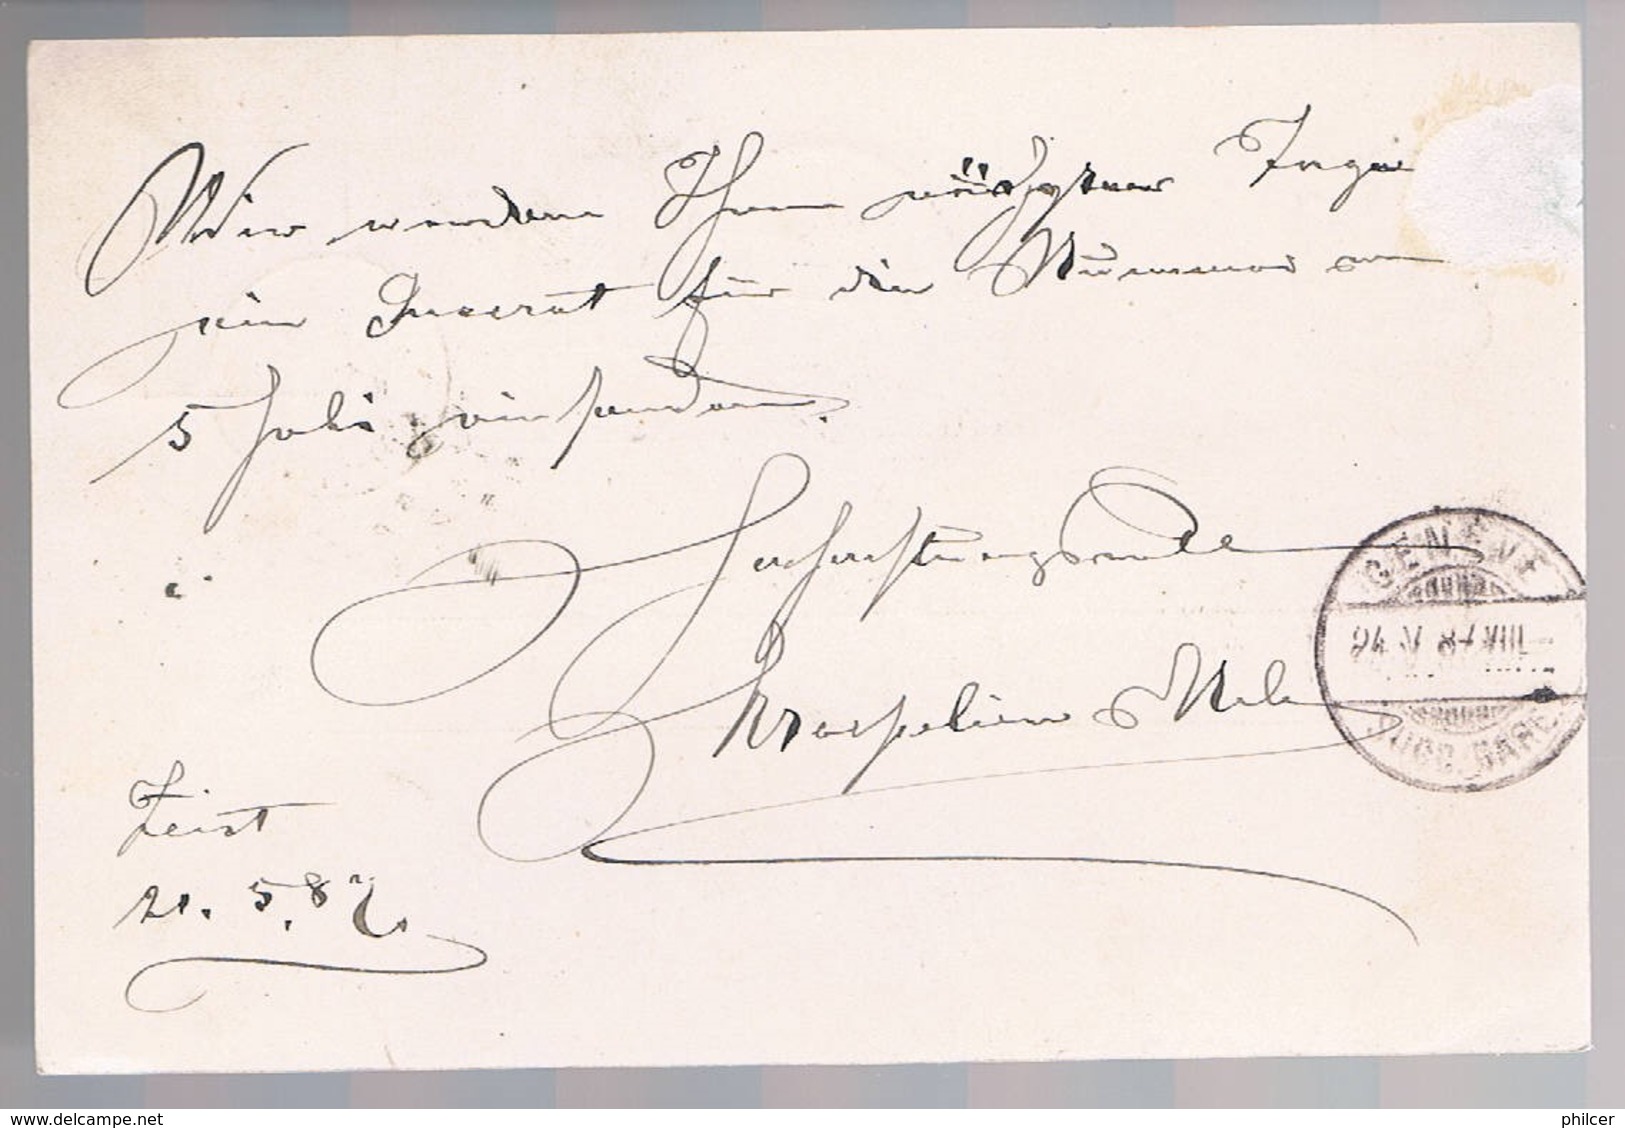 Wir werden Ihnen nächster Tage
ein Inserat für die Nummer vom
5 Juli einsenden.
Hochachtungsvoll
Kraepelien & Holm
Zeist
21. 5. 87.
GENÈVE
24 V 87 VIII
SUCC. GARE
www.delcampe.net
philcer